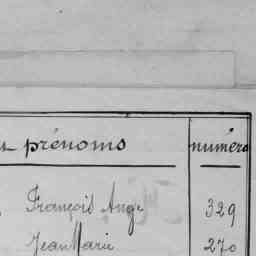 prénoms numéro
François Ange 329
Jean Marie 270